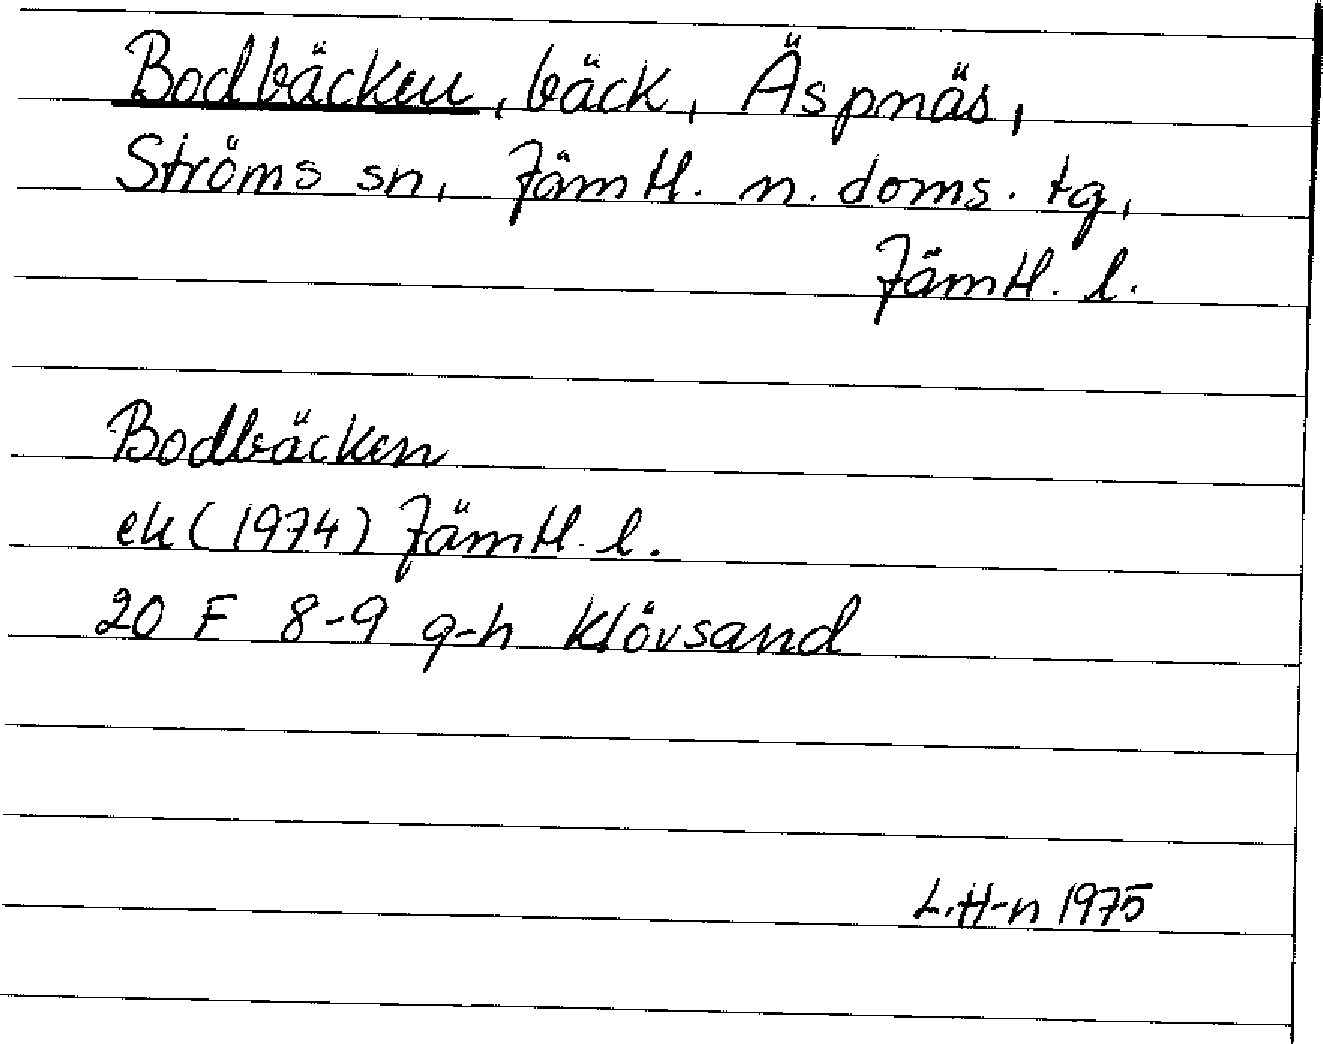 Bodbäcken, bäck, Äspnäs,
Ströms sn, Jämtl. n. doms. tg,
Jämtl. l.
Bodbäcken
ek (1974) Jämtl. l.
20 F 8-9 g-h Klövsand
L.H-n 1975